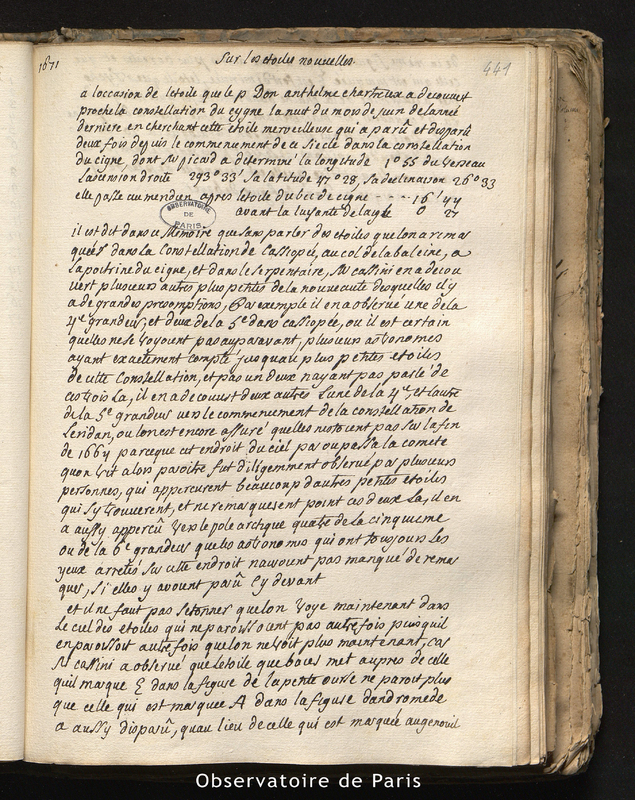 1671
Sur les etoiles nouvelles.
441
a loccasion de letoile que le p Don anthelme chartreux a decouvert
proche la constellation du cygne la nuit du mois de juin de lanneé
derniere en cherchant cette etoile merveilleuse qui a parû et disparû
deux fois depuis le commencement de ce siecle dans la constellation
du cigne, dont Mr picard a determiné la longitude 1° 55 du verseau
Lascension droite 293° 33' Sa latitude 47° 28, Sa declenaison 26° 33
elle passe au meridien apres letoile du bec de cigne ---- 16' 44
avant la luysante de laigle 0 27
OBSERVATOIRE
DE
PARIS
il est dit dans ce Memoire que sans parler des etoiles que lon a remar
queés dans la Constellation de Cassiopeé, au col de la baleine, a
La poitrine du cigne, et dans le Serpentaire, Mr Cassini en a decou
vert plusieurs autres plus petites de la nouveauté desquelles il y
a de grandes presomptions, Par exemple il en a observé une de la
4e grandeur, et deux de la 5e dans cassiopeé, ou il est certain
quelles ne se voyoient pas auparavant, plusieurs astronomes
ayant exactement compté jusquau plus petites etoiles
de cette Constellation, et pas un deux nayant pas parlé de
ces trois La, il en a decouvert deux autres Lune de la 4e, et Lautre
de la 5e grandeur vers le commencement de la constellation de
Leridan, ou lon est encore assuré quelles nestoient pas sur la fin
de 1664 parceque cet endroit du ciel par ou passa la comete
quon vit alors paroitre fut diligemment observé par plusieurs
personnes, qui apperceurent beaucoup dautres petites etoiles
qui sy trouverent, et ne remarquerent point ces deux La, il en
a aussy apperçû vers le pole arctique quatre de la cinquieme
ou de la 6e grandeur que les astronomes qui ont tousjours les
yeux arretés sur cette endroit nauroient pas manqué de remar
quer, si elles y avoient parû cy devant
et il ne faut pas setonner que lon voye maintenant dans
Le ciel des etoiles qui ne paroissoient pas autrefois puisquil
en paroissoit autrefois que lon ne voit plus maintenant, car
Mr cassini a observé que letoile que baies met aupres de celle
quil marque ξ dans la figure de la petite ourse ne paroit plus
que celle qui est marqueé A dans la figure dandromede
a aussy disparû, quau lieu de celle qui est marqueé au genouil
Observatoire de Paris